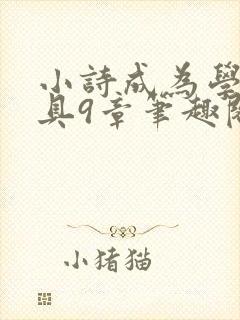 小詩成為學
具9章筆趣閱
小猪猫